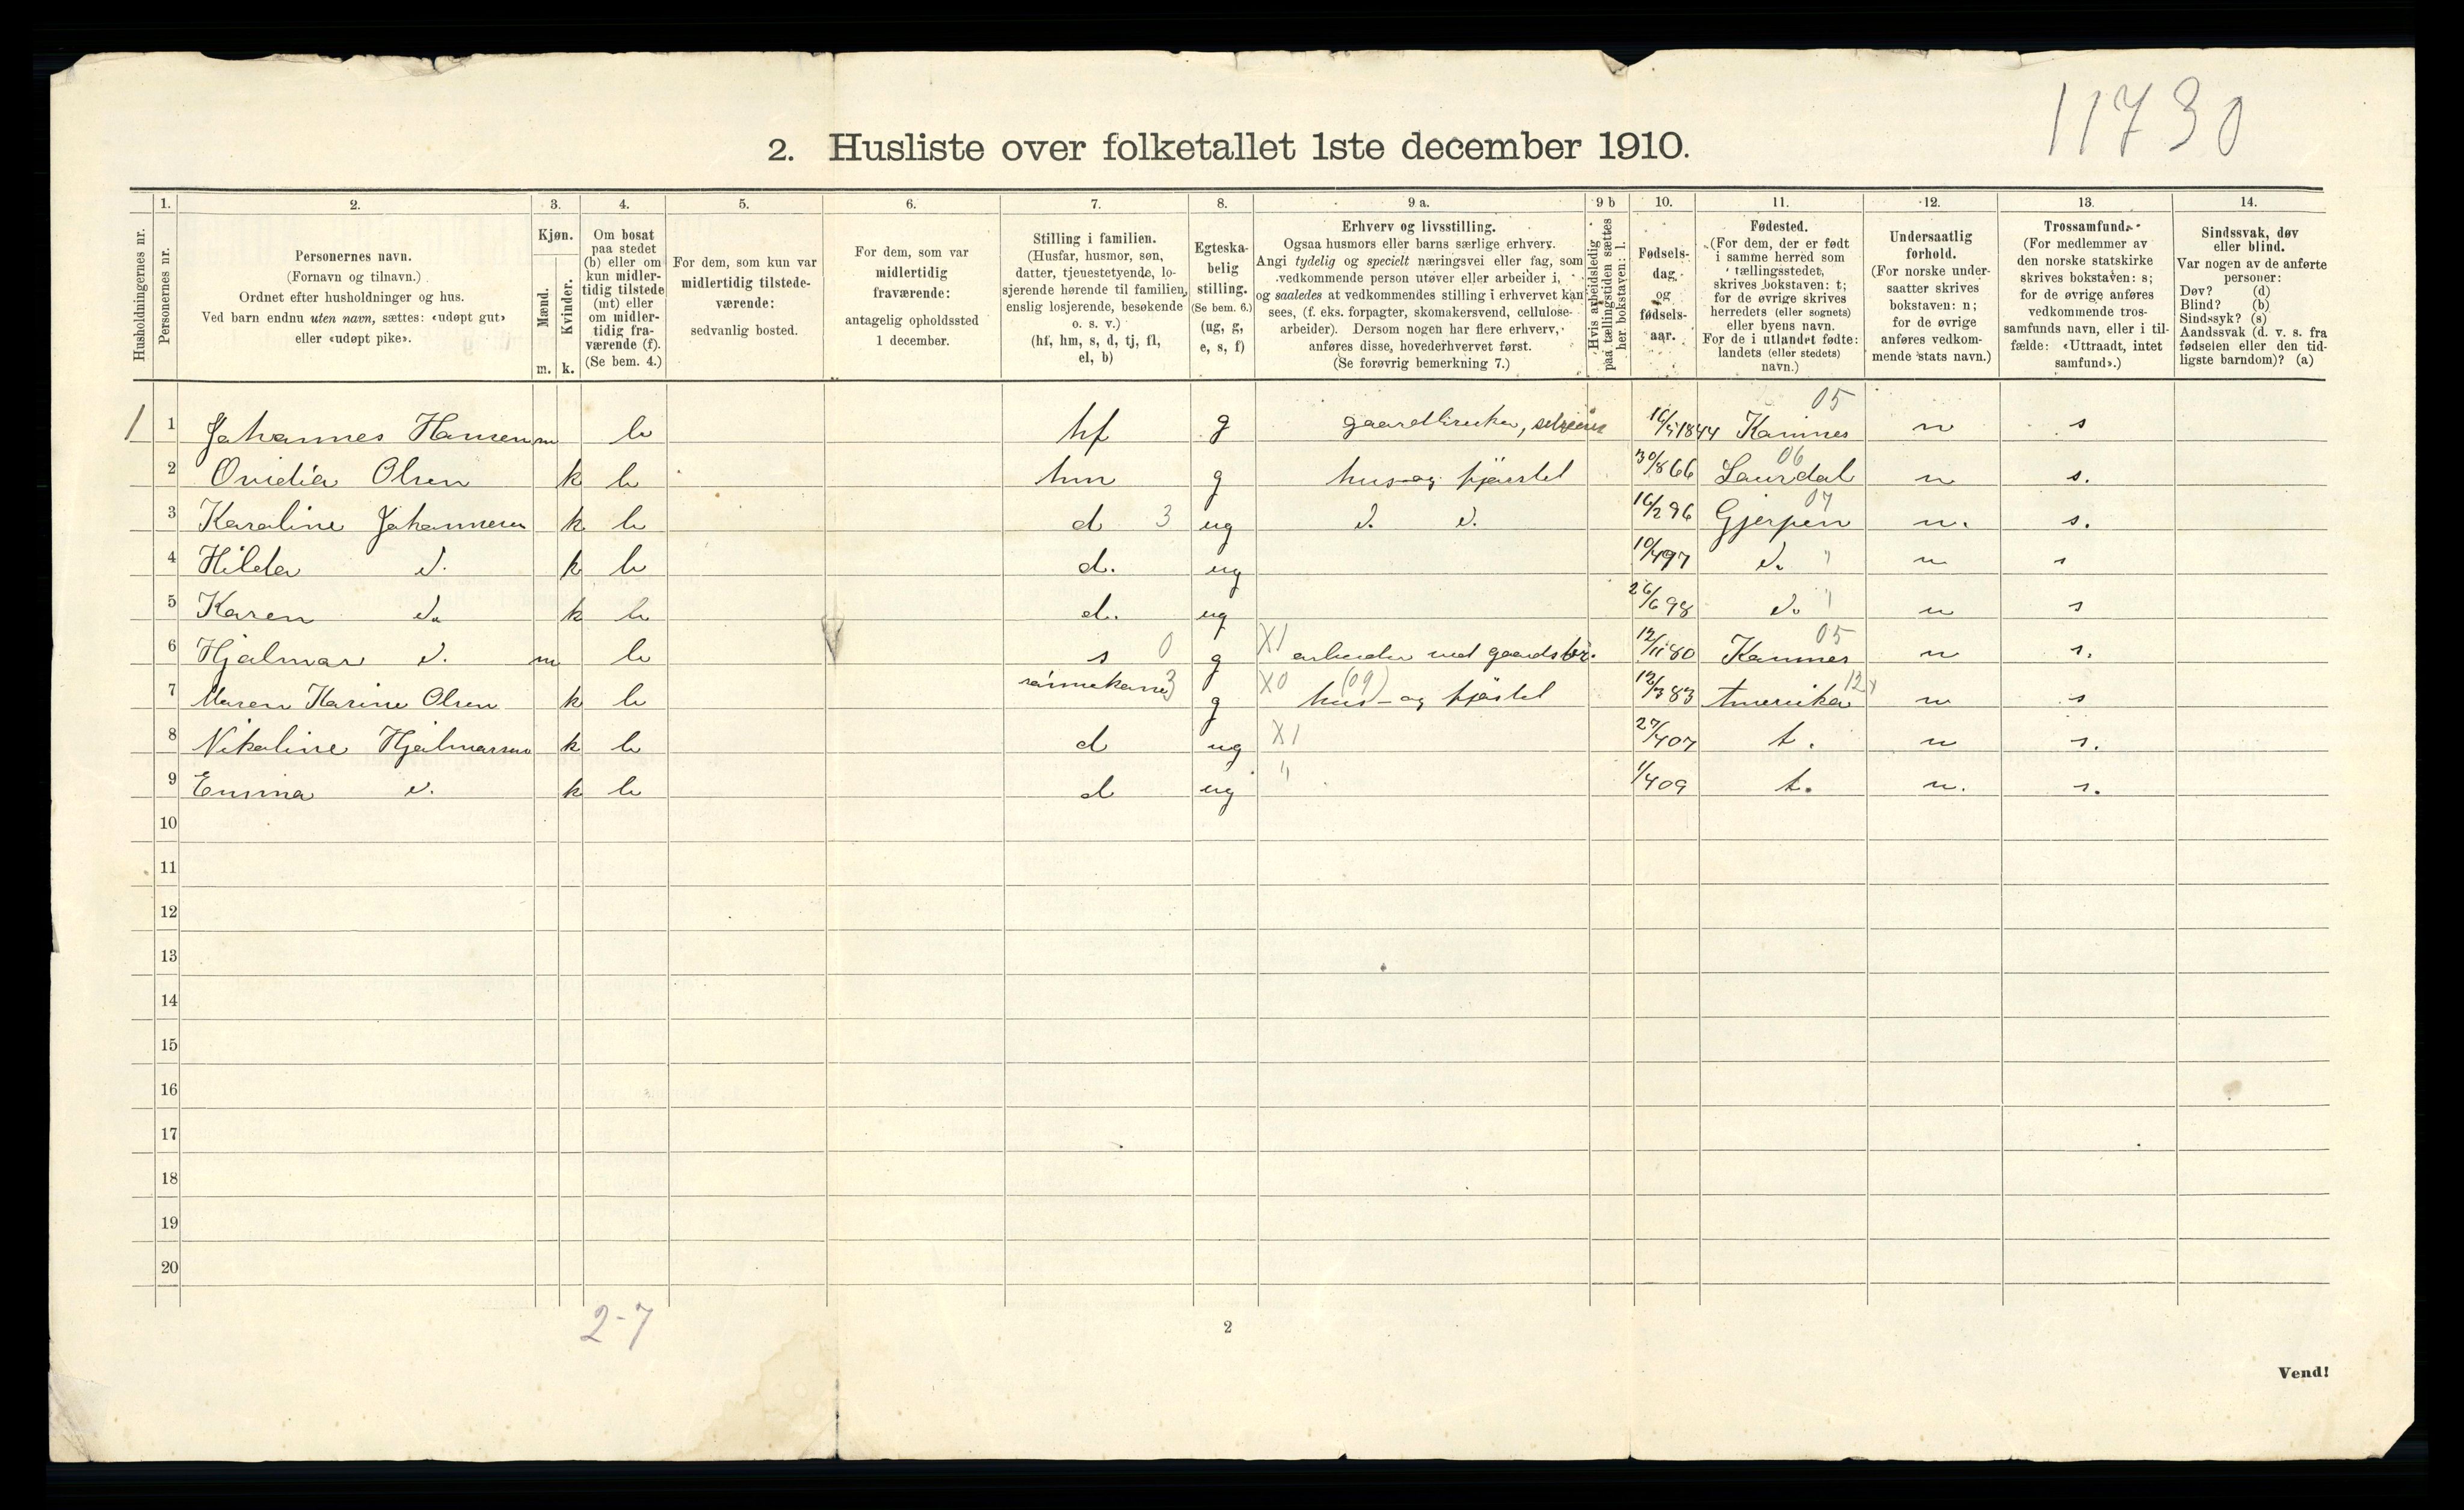 11730
2. Husliste over folketallet 1ste december 1910.
Husholdningernes nr.
1.
Personernes nr.
2.
Personernes navn.
(Fornavn og tilnavn.)
Ordnet efter husholdninger og hus.
Ved barn endnu uten navn, sættes: «udøpt gut»
eller «udøpt pike».
3.
Kjøn.
Mænd.
Kvinder.
m. k.
4.
Om bosat
paa stedet
(b) eller om
kun midler-
tidig tilstede
(mt) eller
om midler-
tidig fra-
værende (f).
(Se bem. 4.)
5.
For dem, som kun var
midlertidig tilstede-
værende:
sedvanlig bosted.
6.
For dem, som var
midlertidig
fraværende:
antagelig opholdssted
1 december.
7.
Stilling i familien.
(Husfar, husmor, søn,
datter, tjenestetyende, lo-
sjerende hørende til familien,
enslig losjerende, besøkende
o. s. v.)
(hf, hm, s, d, tj, fl,
el, b)
8.
Egteska-
belig
stilling.
(Se bem. 6.)
(ug, g,
e, s, f)
9 a.
Erhverv og livsstilling.
Ogsaa husmors eller barns særlige erhverv.
Angi tydelig og specielt næringsvei eller fag, som
vedkommende person utøver eller arbeider i,
og saaledes at vedkommendes stilling i erhvervet kan
sees, (f. eks. forpagter, skomakersvend, cellulose-
arbeider). Dersom nogen har flere erhverv,
anføres disse, hovederhvervet først.
(Se forøvrig bemerkning 7.)
9 b
Hvis arbeidsledig
paa tællingstiden sættes
her bokstaven: l.
10.
Fødsels-
dag
og
fødsels-
aar.
11.
Fødested.
(For dem, der er født
i samme herred som
tællingsstedet,
skrives bokstaven: t;
for de øvrige skrives
herredets (eller sognets)
eller byens navn.
For de i utlandet fødte:
landets (eller stedets)
navn.)
12.
Undersaatlig
forhold.
(For norske under-
saatter skrives
bokstaven: n;
for de øvrige
anføres vedkom-
mende stats navn.)
13.
Trossamfund.
(For medlemmer av
den norske statskirke
skrives bokstaven: s;
for de øvrige anføres
vedkommende tros-
samfunds navn, eller i til-
fælde: «Uttraadt, intet
samfund».)
14.
Sindssvak, døv
eller blind.
Var nogen av de anførte
personer:
Døv? (d)
Blind? (b)
Sindssyk? (s)
Aandssvak (d. v. s. fra
fødselen eller den tid-
ligste barndom)? (a)
05
1 1 Johannes Hansen m b hf g gaardbruker, selveier 1844 n s
06
2 Ovidia Olsen k b hm g hus og fjøsstel 30/8 66 Laurdal n s.
07
3 Karoline Johannesen k b d 3 ug d. d. 16/2 96 Gjerpen n. s.
4 Hilda d. k b d. ug 10/4 97 d. " n s
5 Karen do k b d. ug 26/6 98 do " n s
05
6 Hjalmar d. m b s 0 g X1 arbeider ved gaardsbr. 12/11 80 n s.
7 Maren Karine Olsen k b sønnekone 3 g X0 (09) hus- og fjøstel 12/3 83 Amerika 12 n s
8 Nikoline Hjalmarsen k b d ug X1 27/4 07 t. n s.
9 Emma d. k b d ug " 1/4 09 t. n. s.
10
11
12
13
14
15
16
17
18
19
20
2-7
2
Vend!